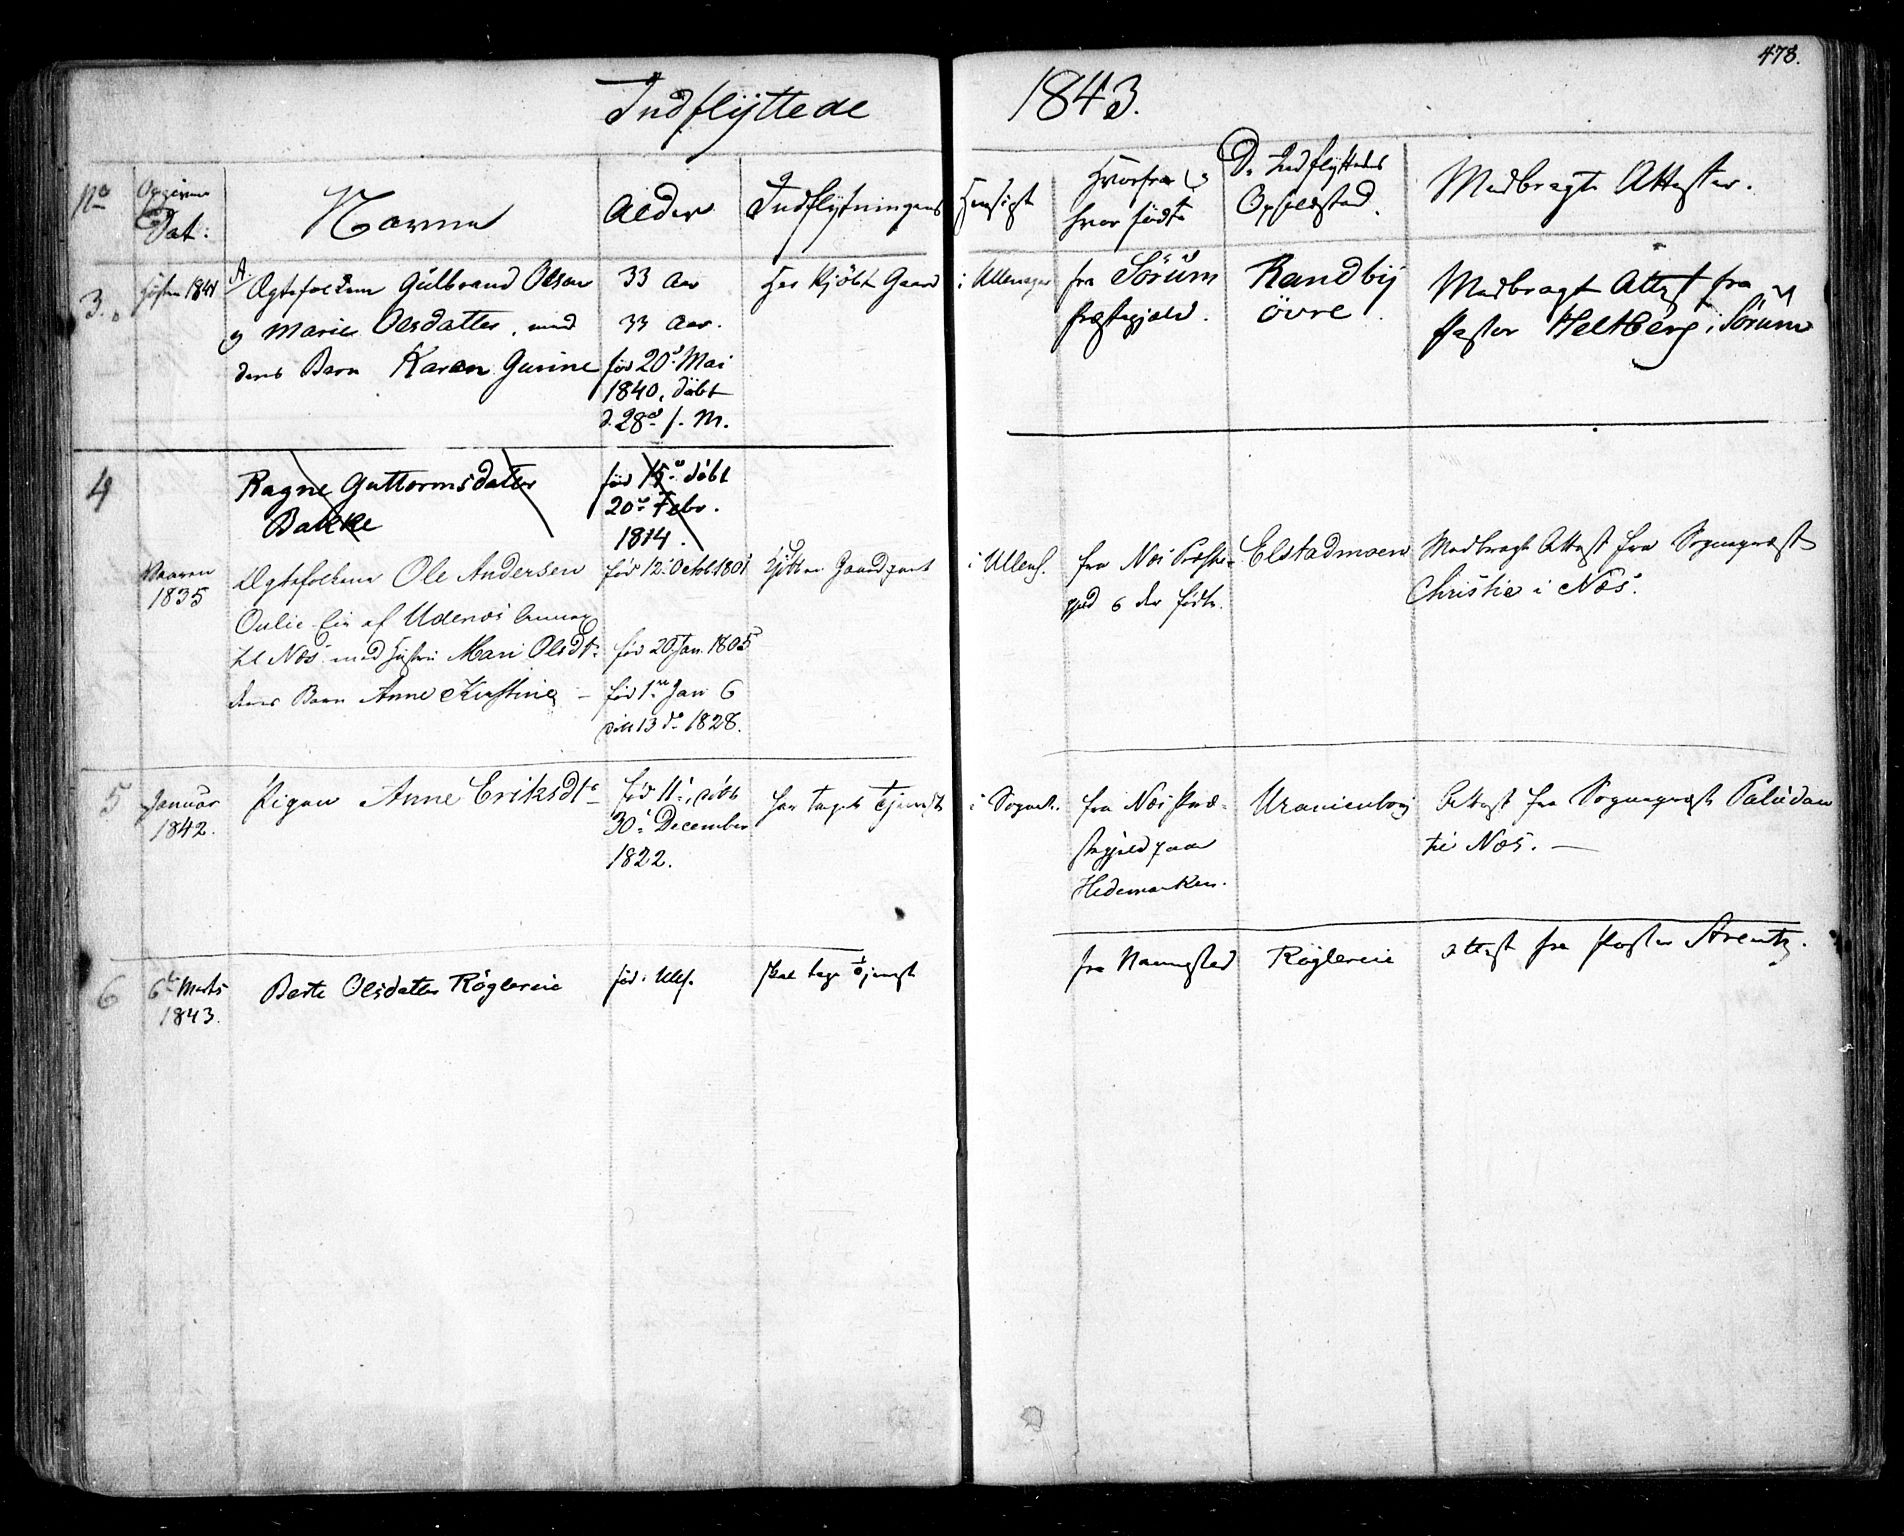 478.
Indflÿttede 1843.
No
Opgivne
Dat:
Navne
Alder
Indflÿtningens Hensigt
Hvorfra og
hvor födte
De Indflÿttedes
Opholdsted.
Medbragte Attester.
3.
Hösten 1841
Ægtefolkene Gulbrand Olsen
og Marie Olsdatter, med
deres Barn Karen Gurine
33 Aar
33 Aar.
föd 20de Mai
1840, döbt
d. 28de s. M.
Har kjöbt Gaard i Ullensager
fra Sörum
Præstegjæld.
Randbÿ
övre
Medbragt Attest fra
Pastor Heltberg i Sörum
4
Ragne Guttormsdatter
Bakke
föd 15de döbt
20de Febr.
1814.
Vaaren
1835
Ægtefolkene Ole Andersen
af Udenæs Annex
til Næs med Hustru Mari Olsdtr
deres Barn Anne Kirstine –
föd 12 Octob 1801
föd 20 Jan. 1805
föd 1ste Jan 6
13 do 1828.
Kjöbt Gaardpart i Ullens.
fra Næs Præste-
gjeld og der födte.
Elstadmoen
Medbragt Attest fra Sognepræst
Christie i Næs.
5
Januar
1842.
Pigen Anne Eriksdtr
föd 11te, döbt
30te December
1822.
har taget Tjeneste i Sognet.
fra Næs Præ-
stegjeld paa
Hedemarken.
Uranienborg
Attest fra Sognepræst Paludan
til Næs. —
6
6te Marts
1843.
Berte Olsdatter Röglereie
föd i Ulls.
skal tage Tjenest
fra Nannestad
Röglereie
Attest fra Pastor Arentz.